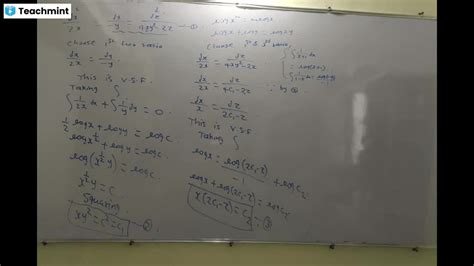 Teachmint
dx/2x = dy/-y = dz/(4xy²-2z) —①
choose 1st two ratio
dx/2x = dy/-y
This is V.S.F.
Taking ∫
∫ 1/2x dx + ∫ 1/y dy = 0
1/2 logx + logy = logc
logx^½ + logy = logc
log(x^½ y) = logc
x^½ y = c
Squaring
xy² = c² = c₁ —②
logx + logy = logxy
choose 1st & 3rd ratio
dx/2x = dz/(4xy²-2z)
dx/2x = dz/(4c₁-2z) ∵ by ②
dx/x = dz/(2c₁-z)
This is V.S.F
Taking ∫
logx = log(2c₁-z)/-1 + logc₂
logx + log(2c₁-z) = logc₂
x(2c₁-z) = c₂ —③